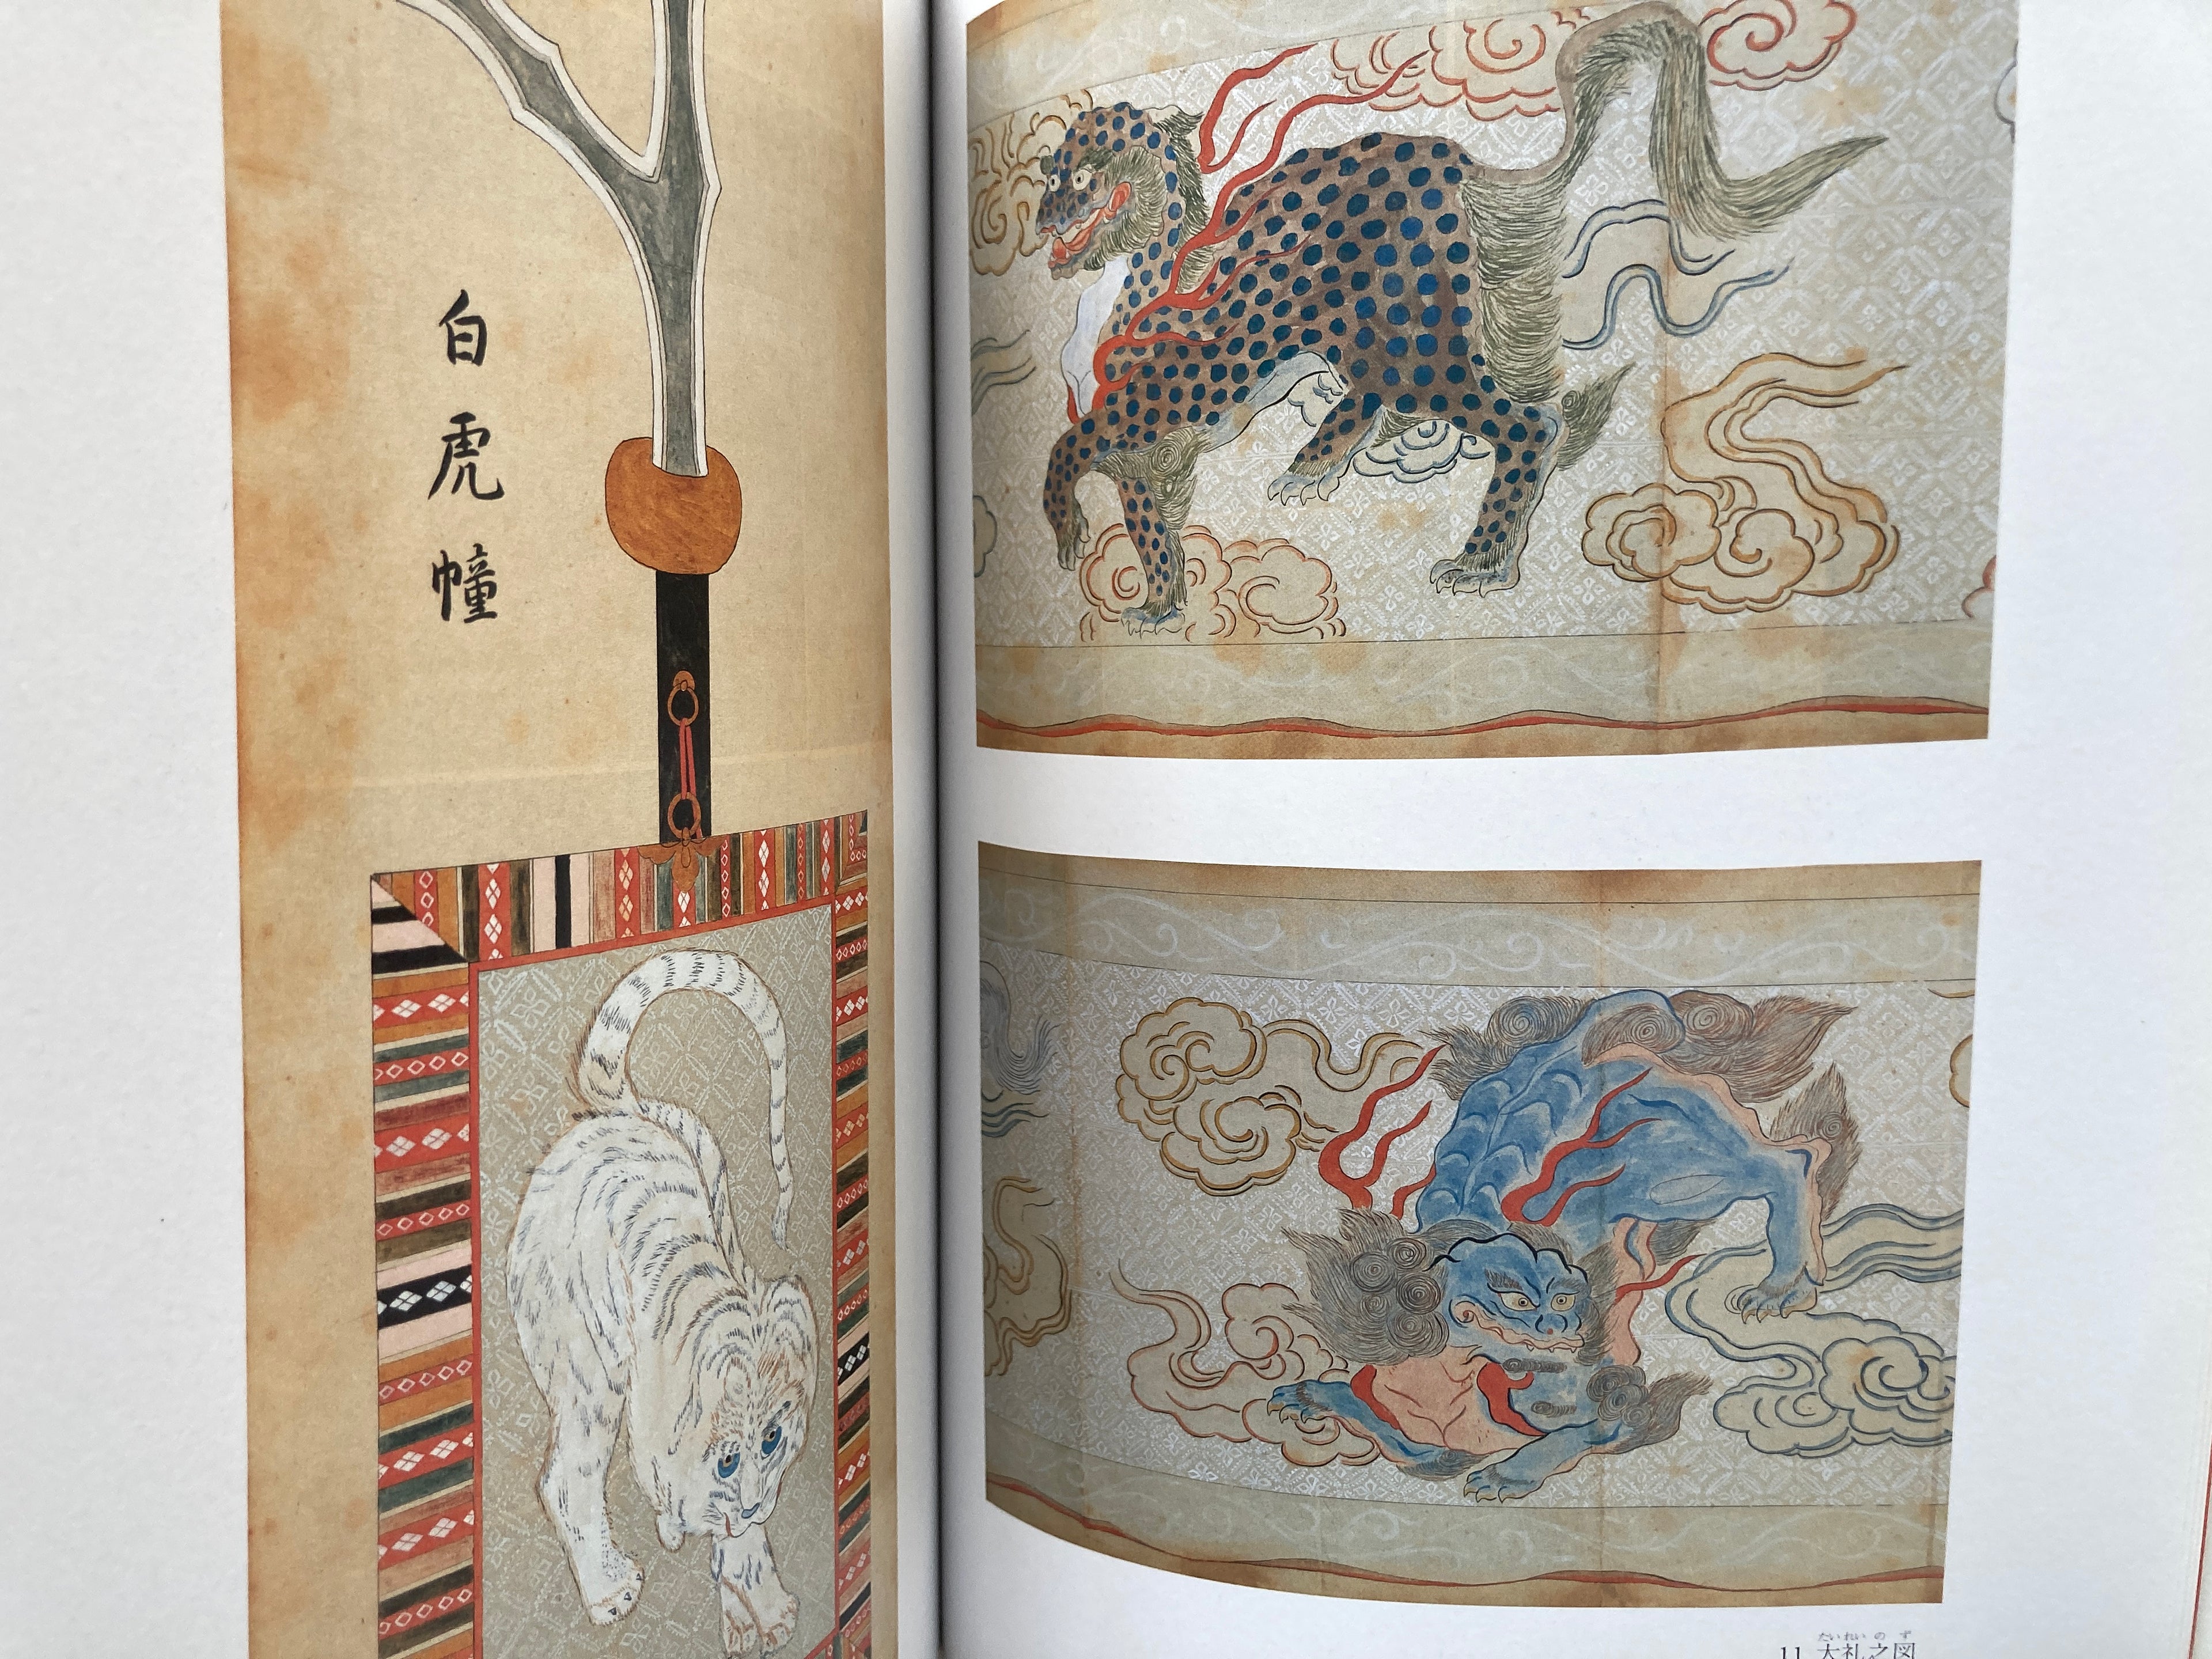 白虎幢
たいれいのず
11 大礼之図